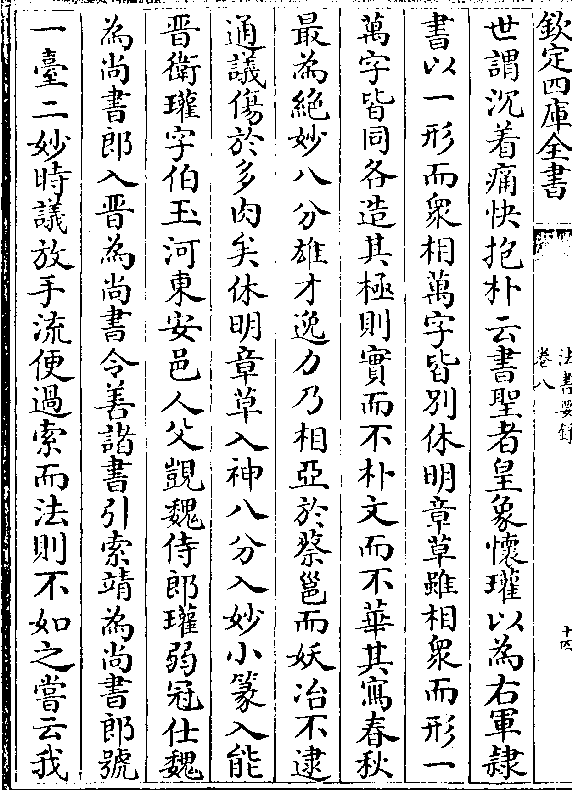 欽定四庫全書
法書要錄
卷八
十四
世謂沉着痛快抱朴云書聖者皇象懷瓘以為右軍隸
書以一形而眾相萬字皆別休明章草雖相眾而形一
萬字皆同各造其極則實而不朴文而不華其寫春秋
最為絕妙八分雄才逸力乃相亞於蔡邕而妖冶不逮
通議傷於多肉矣休明章草入神八分入妙小篆入能
晉衛瓘字伯玉河東安邑人父覬魏侍郎瓘弱冠仕魏
為尚書郎入晉為尚書令善諧書引索靖為尚書郎號
一臺二妙時議放手流便過索而法則不如之嘗云我